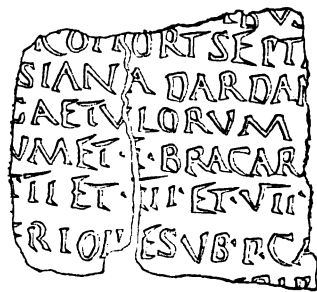 COHORT SEPT
SIANA DARDAN
GAETVLORVM
VM·ET·I·BRACAR
III ET·III·ET·VII·
ERIORESVB·P·CA